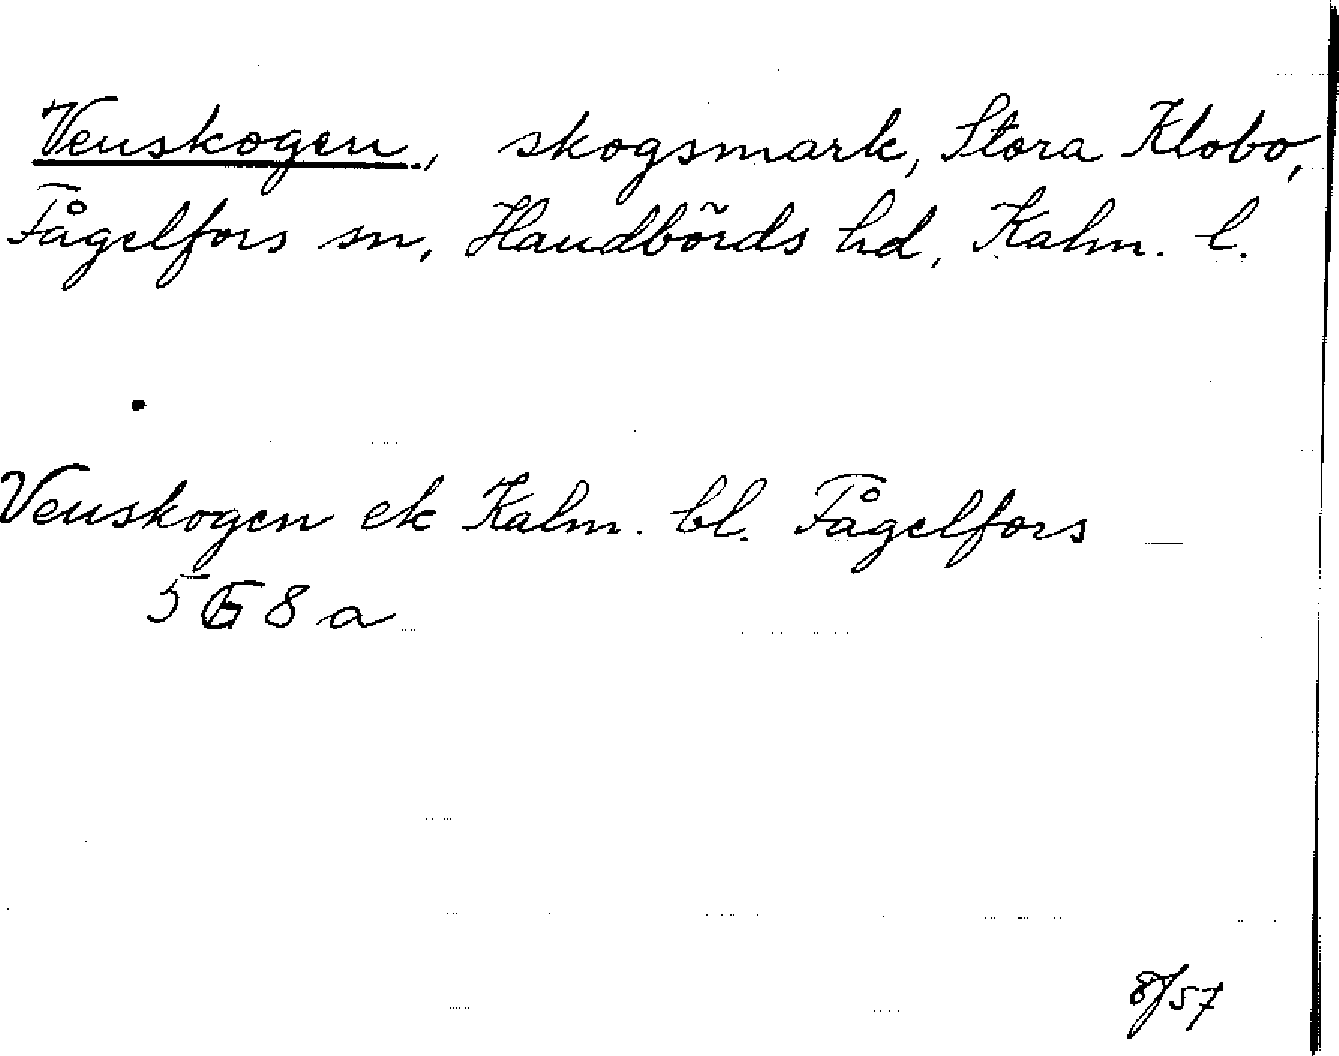 Venskogen, skogsmark, Stora Klobo,
Fågelfors sn, Handbörds hd, Kalm. l.
Venskogen ek Kalm. bl. Fågelfors
5 G 8 a
8/57